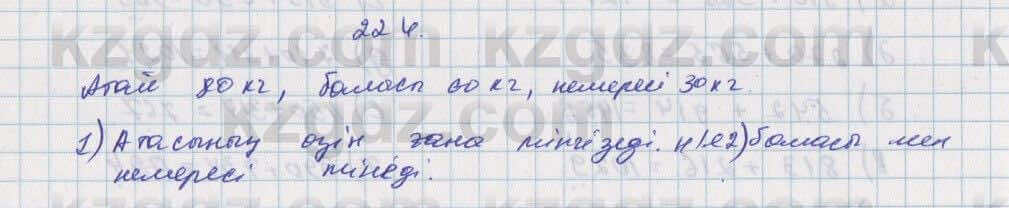 224.
Атай 80 кг, баласы 60 кг, немересі 30 кг.
1) Атасының өзін ғана мінгізеді. н/е 2) баласы мен
немересі мінеді.
kzgdz.com